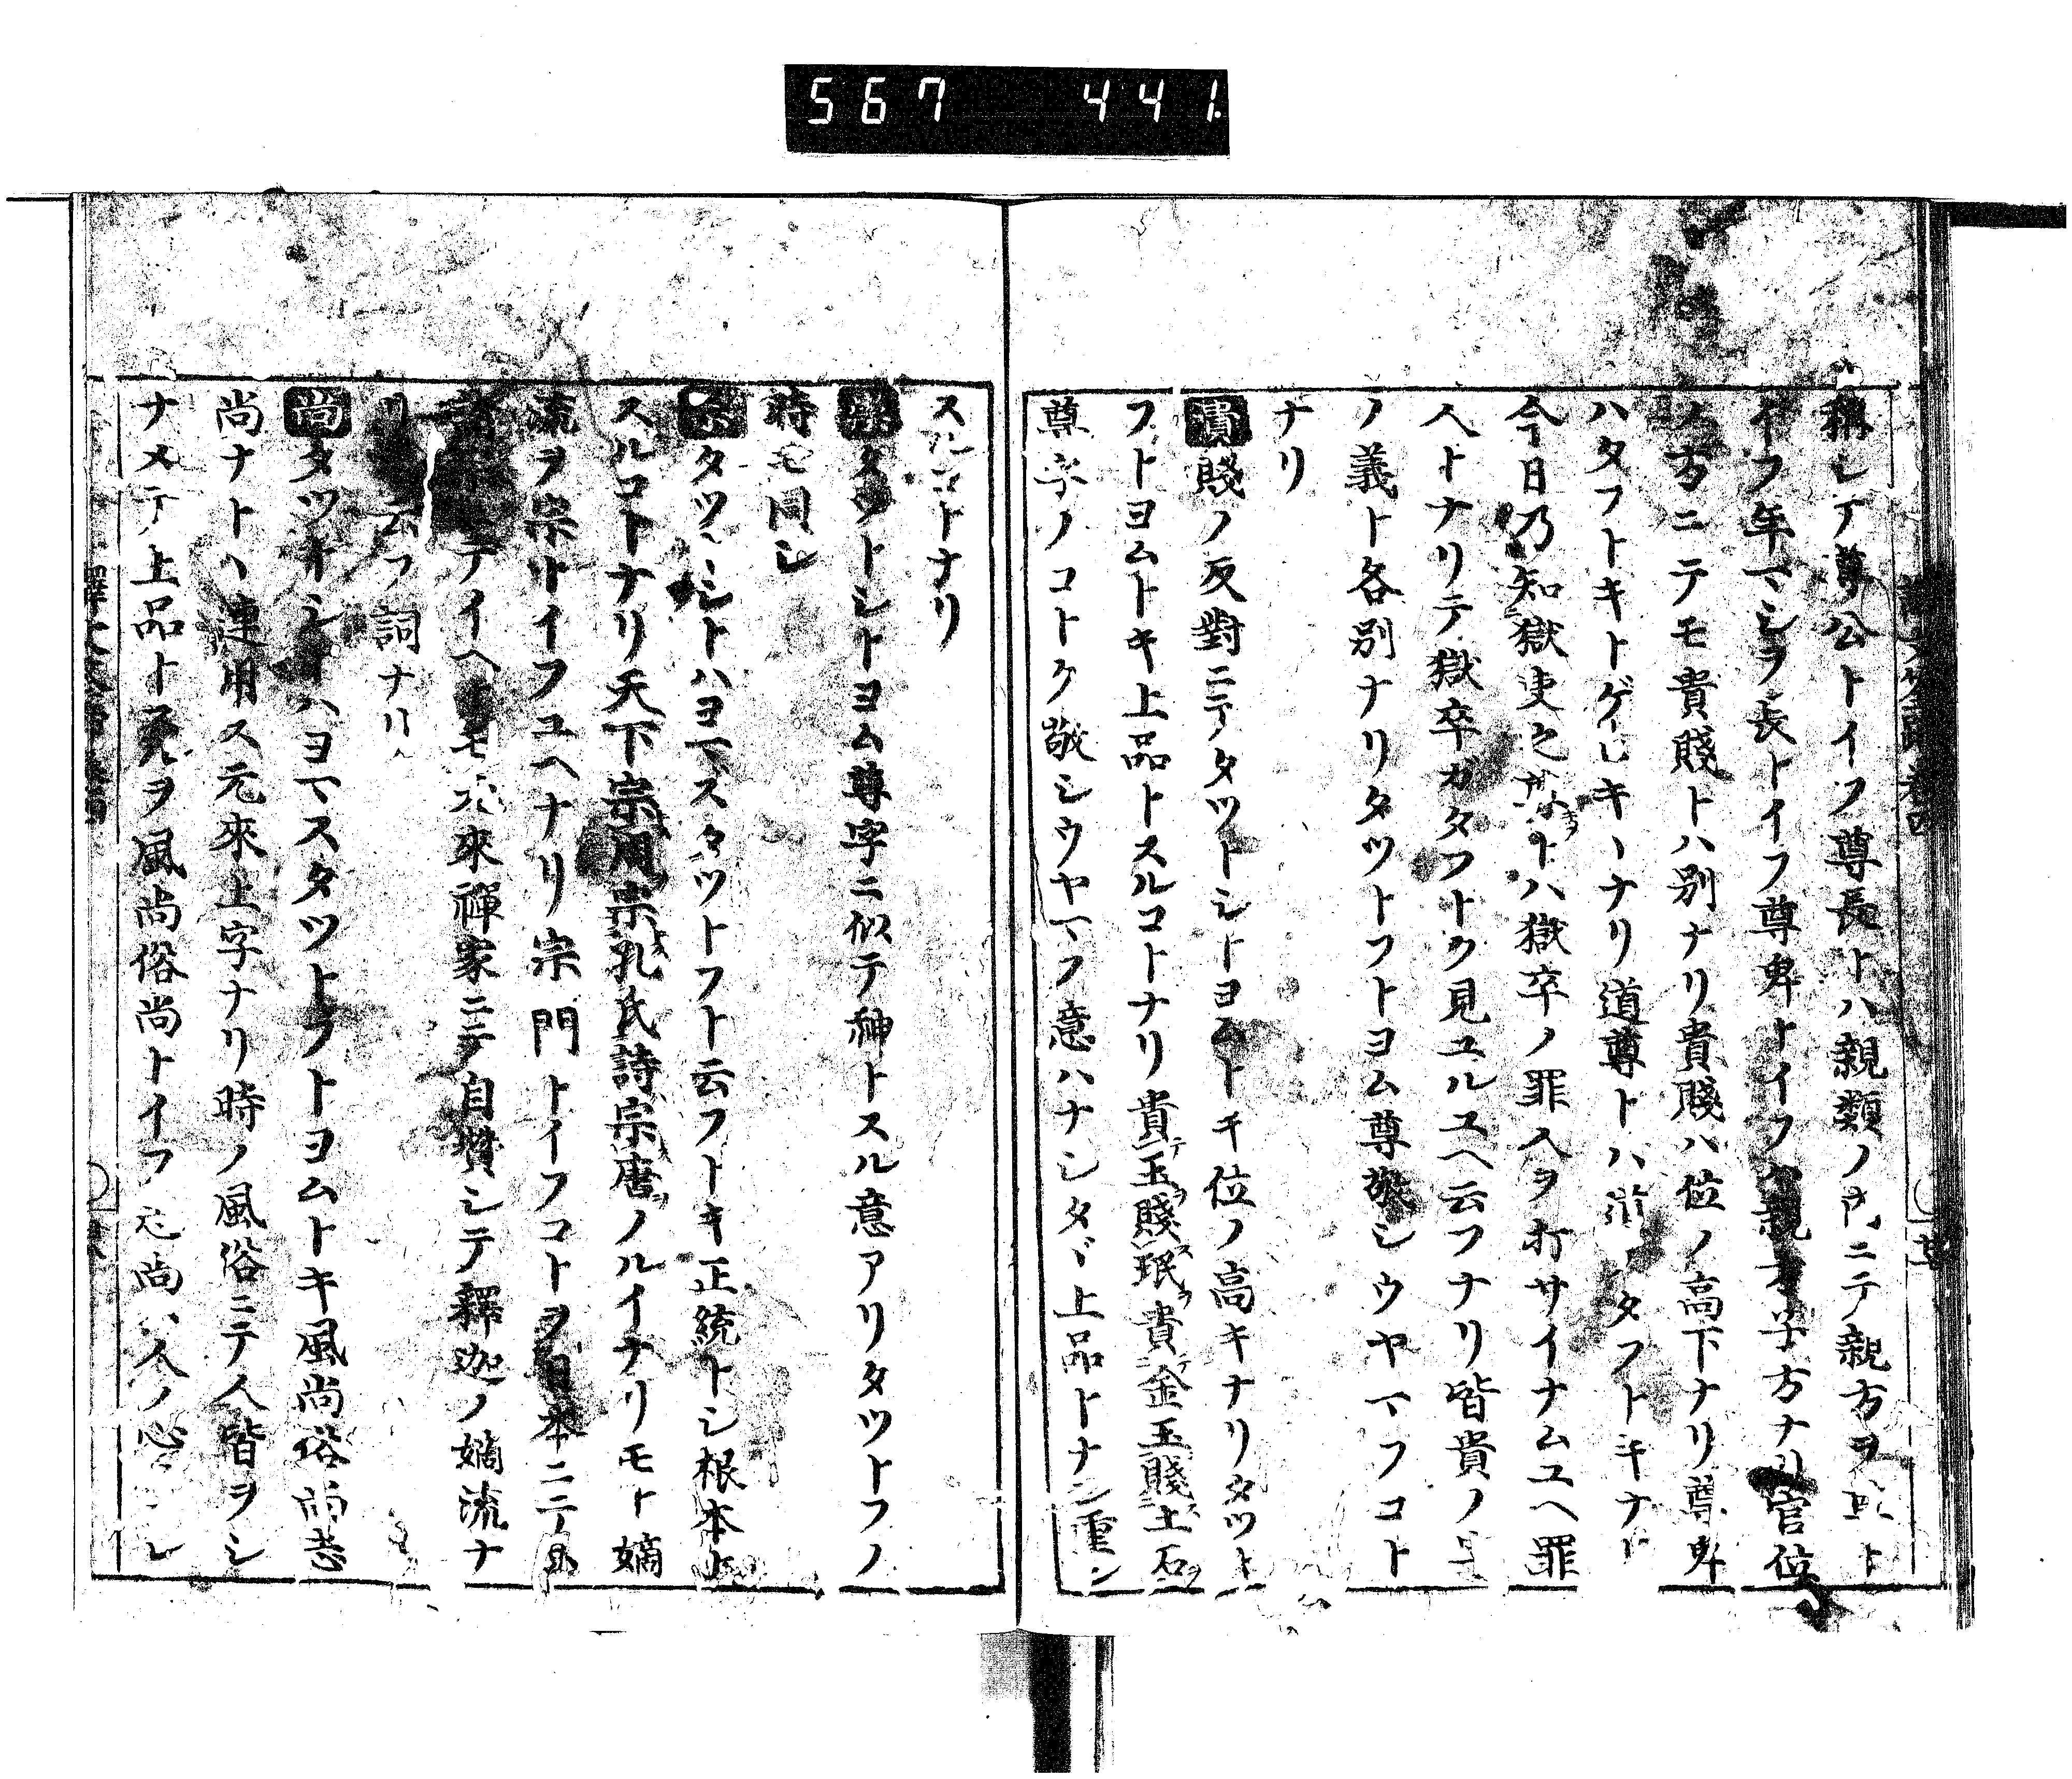 567 441
稱シテ尊公トイフ尊長トハ親類ノ内ニテ親方ヲ尊ト
イフ年マシヲ長トイフ尊卑トイフハ親方子方ナリ官位
ノ方ニテモ貴賤トハ別ナリ貴賤ハ位ノ高下ナリ尊卑
ハタフトキトゲヒキトナリ道尊トハ道ノタフトキナリ
今日乃知獄吏之尊トハ獄卒ノ罪人ヲ打サイナムユヘ罪
人トナリテ獄卒ガタフトク見ユルユヘ云フナリ皆貴ノ字
ノ義ト各別ナリタツトフトヨム尊敬シウヤマフコト
ナリ
貴賤ノ反對ニテタツトシトヨムトキ位ノ高キナリタツト
フトヨムトキ上品トスルコトナリ貴玉賤珉貴金玉賤土石
尊字ノコトク敬シウヤマフ意ハナシタヾ上品トナシ重ン
スルコトナリ
崇タツトシトヨム尊字ニ似テ神トスル意アリタツトフノ
時モ同シ
宗タツヽシトハヨマズタツトフト云フトキ正統トシ根本ト
スルコトナリ天下宗周宗孔氏詩宗唐ノルイナリモト嫡
流ヲ宗トイフユヘナリ宗門トイフコトヲ日本ニテ
テイヘトモ元來禪家ニテ自贊シテ釋迦ノ嫡流ナ
リト云フ詞ナリ
尚タツトシトハヨマスタツトフトヨムトキ風尚俗尚志
尚ナトヽ連用ス元來上字ナリ時ノ風俗ニテ人皆ヲシ
ナメテ上品ト爲ヲ風尚俗尚トイフ志尚ハ人ノ心ニコレ